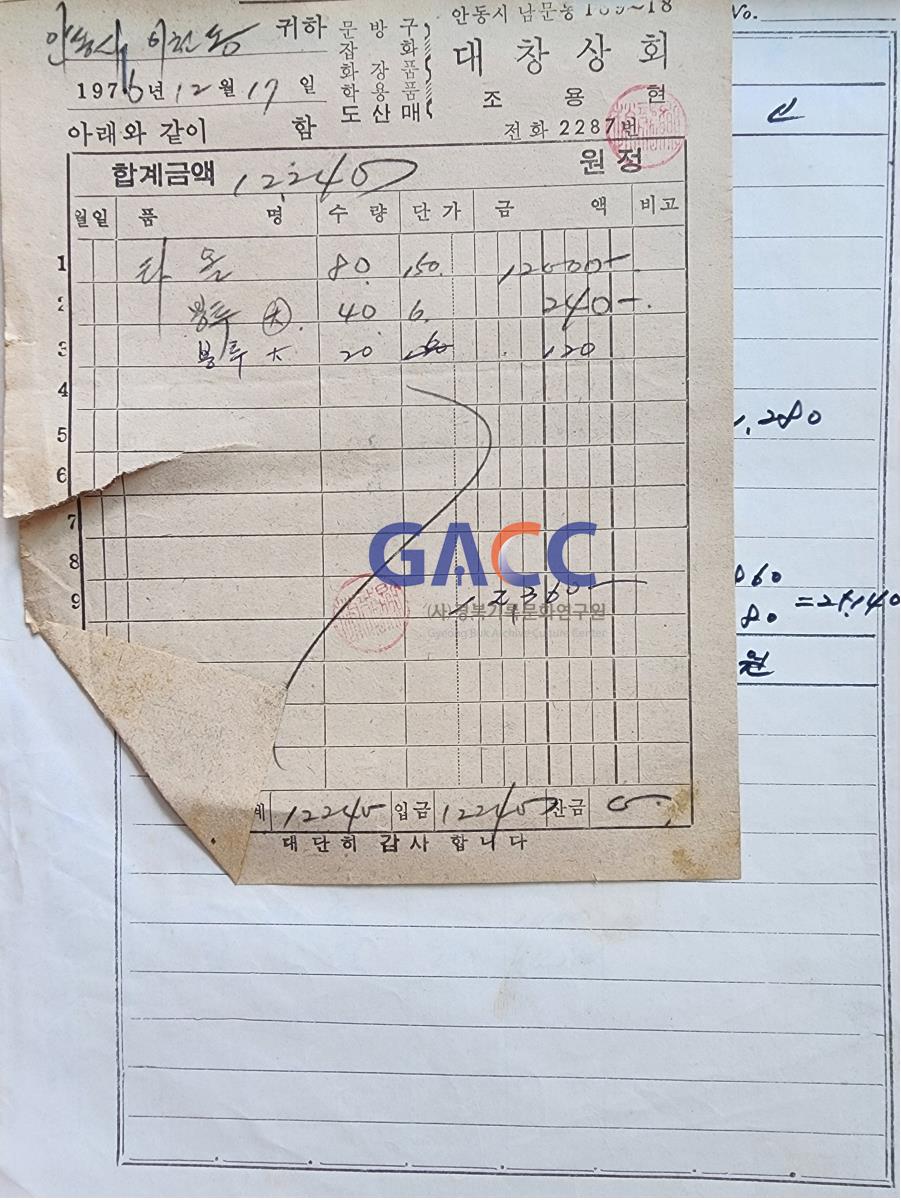 안동시 이천동 귀하
1976년 12월 17일
아래와 같이 함
문방구
잡화품
화장품
학용품
도산매
안동시 남문동
대창상회
조용현
전화 2287번
합계금액 12,240 원정
월일 품명 수량 단가 금액 비고
1 타올 80 150 12000-
2 봉투 大 40 6 240-
3 봉투 大 20 120
4
5
6
7
8
9 12360-
GACC
(사)경북기록문화연구원
Gyeong Buk Archive Culture Center
계 12240 입금 12240 잔금 0
대단히 감사합니다
No.
1,280
060
80 =21,140
원